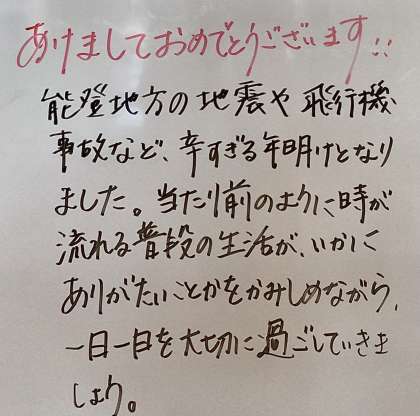 あけましておめでとうございます!!
能登地方の地震や飛行機
事故など、辛すぎる年明けとなり
ました。当たり前のように時が
流れる普段の生活が、いかに
ありがたいことかをかみしめながら、
一日一日を大切に過ごしていきま
しょう。